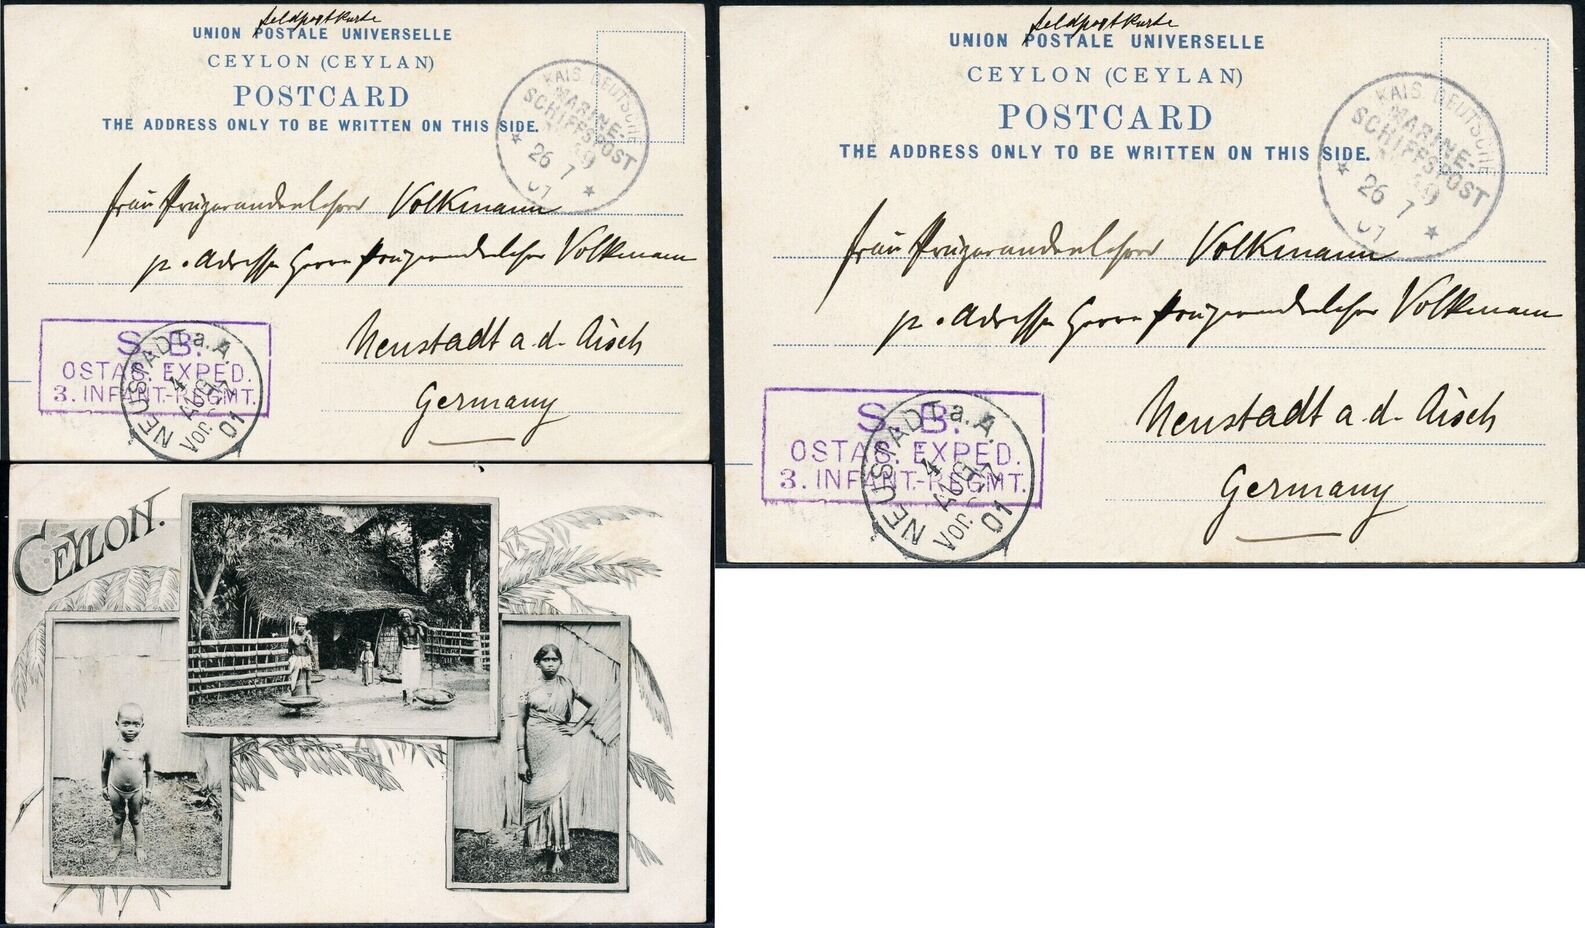 Feldpostkarte
UNION POSTALE UNIVERSELLE
CEYLON (CEYLAN)
POSTCARD
THE ADDRESS ONLY TO BE WRITTEN ON THIS SIDE.
KAIS. DEUTSCHE
MARINE-
SCHIFFSPOST
26 7
01
Frau Volkmann
p. Adresse Herrn Volkmann
Neustadt a. d. Aisch
Germany
S. B.
OSTAS. EXPED.
3. INFANT.-REGMT.
NEUSTADT a. A.
4
AUG
Vor.
01
CEYLON.
Feldpostkarte
UNION POSTALE UNIVERSELLE
CEYLON (CEYLAN)
POSTCARD
THE ADDRESS ONLY TO BE WRITTEN ON THIS SIDE.
KAIS. DEUTSCHE
MARINE-
SCHIFFSPOST
26 7
01
Frau Volkmann
p. Adresse Herrn Volkmann
Neustadt a. d. Aisch
Germany
S. B.
OSTAS. EXPED.
3. INFANT.-REGMT.
NEUSTADT a. A.
4
AUG
Vor.
01